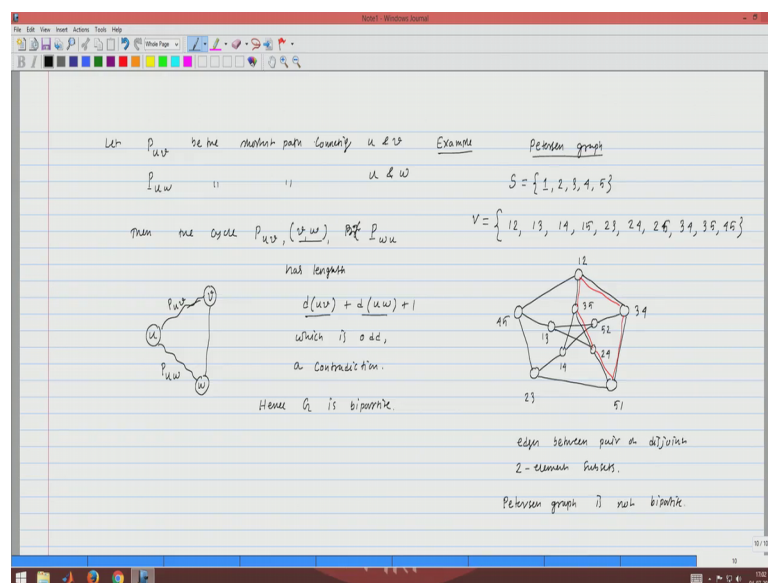 Note1 - Windows Journal
File Edit View Insert Actions Tools Help
Whole Page
B I
Let P_uv be the shortest path connecting u & v
P_uw " " u & w
Then the cycle P_uv, (v w), P_wu
has length
d(uv) + d(uw) + 1
which is odd,
a contradiction.
Hence G is bipartite.
P_uv
v
u
P_uw
w
Example Petersen graph
S = {1, 2, 3, 4, 5}
V = {12, 13, 14, 15, 23, 24, 25, 34, 35, 45}
12
45
35
34
13
52
14
24
23
51
edges between pair of disjoint
2-element subsets.
Petersen graph is not bipartite.
10 / 10
10
17:02